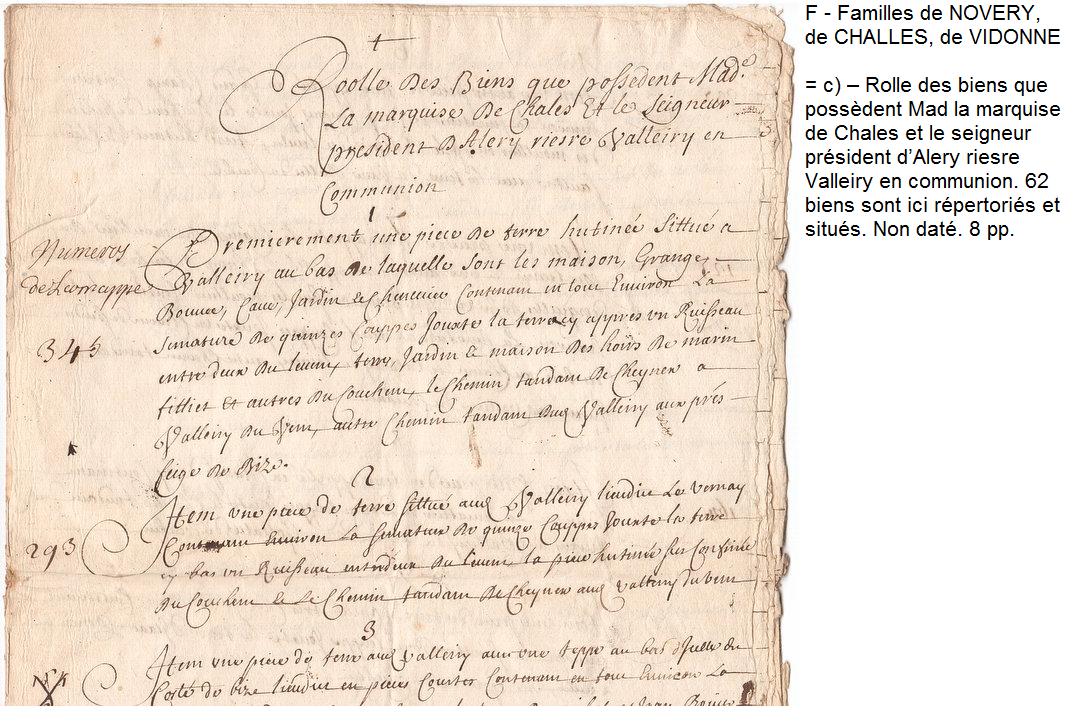 Roolle Des Biens que possedent Mad.e
La marquise De Chales Et le Seigneur
president D'Alery riesre Valleiry en
Communion
1
Numeros
de La mappe
Premierement une piece de terre hutinée Sittué a
Valleiry au bas De laquelle sont les maison, Grange,
Cave, Jardin & Contenant en tout Environ La
345
semature De quinzes Couppes Jouxte la terre cy appres un Ruisseau
entre deux Du levant, terre, Jardin & maison Des De marin
fillief Et autres Du Couchant, le Chemin tandant De Cheyner a
Valleiry Du Vent, autre Chemin tandant Valleiry aux prés
De Bize.
2
Item une piece de terre sittué aud Valleiry lieudit Le vernay
293
Contenant Environ La semature De quinze Couppes Jouxte la terre
cy bas un Ruisseau entredeux Du levant, la piece hutinée
Du Couchant & Le Chemin tandant De Cheyner aud Valleiry Du vent
3
Item une piece de terre aud Valleiry avec une teppe au bas
Costé de bize lieudit en pieces Courtes Contenant en tout Environ La
F - Familles de NOVERY,
de CHALLES, de VIDONNE
= c) – Rolle des biens que
possèdent Mad la marquise
de Chales et le seigneur
président d’Alery riesre
Valleiry en communion. 62
biens sont ici répertoriés et
situés. Non daté. 8 pp.